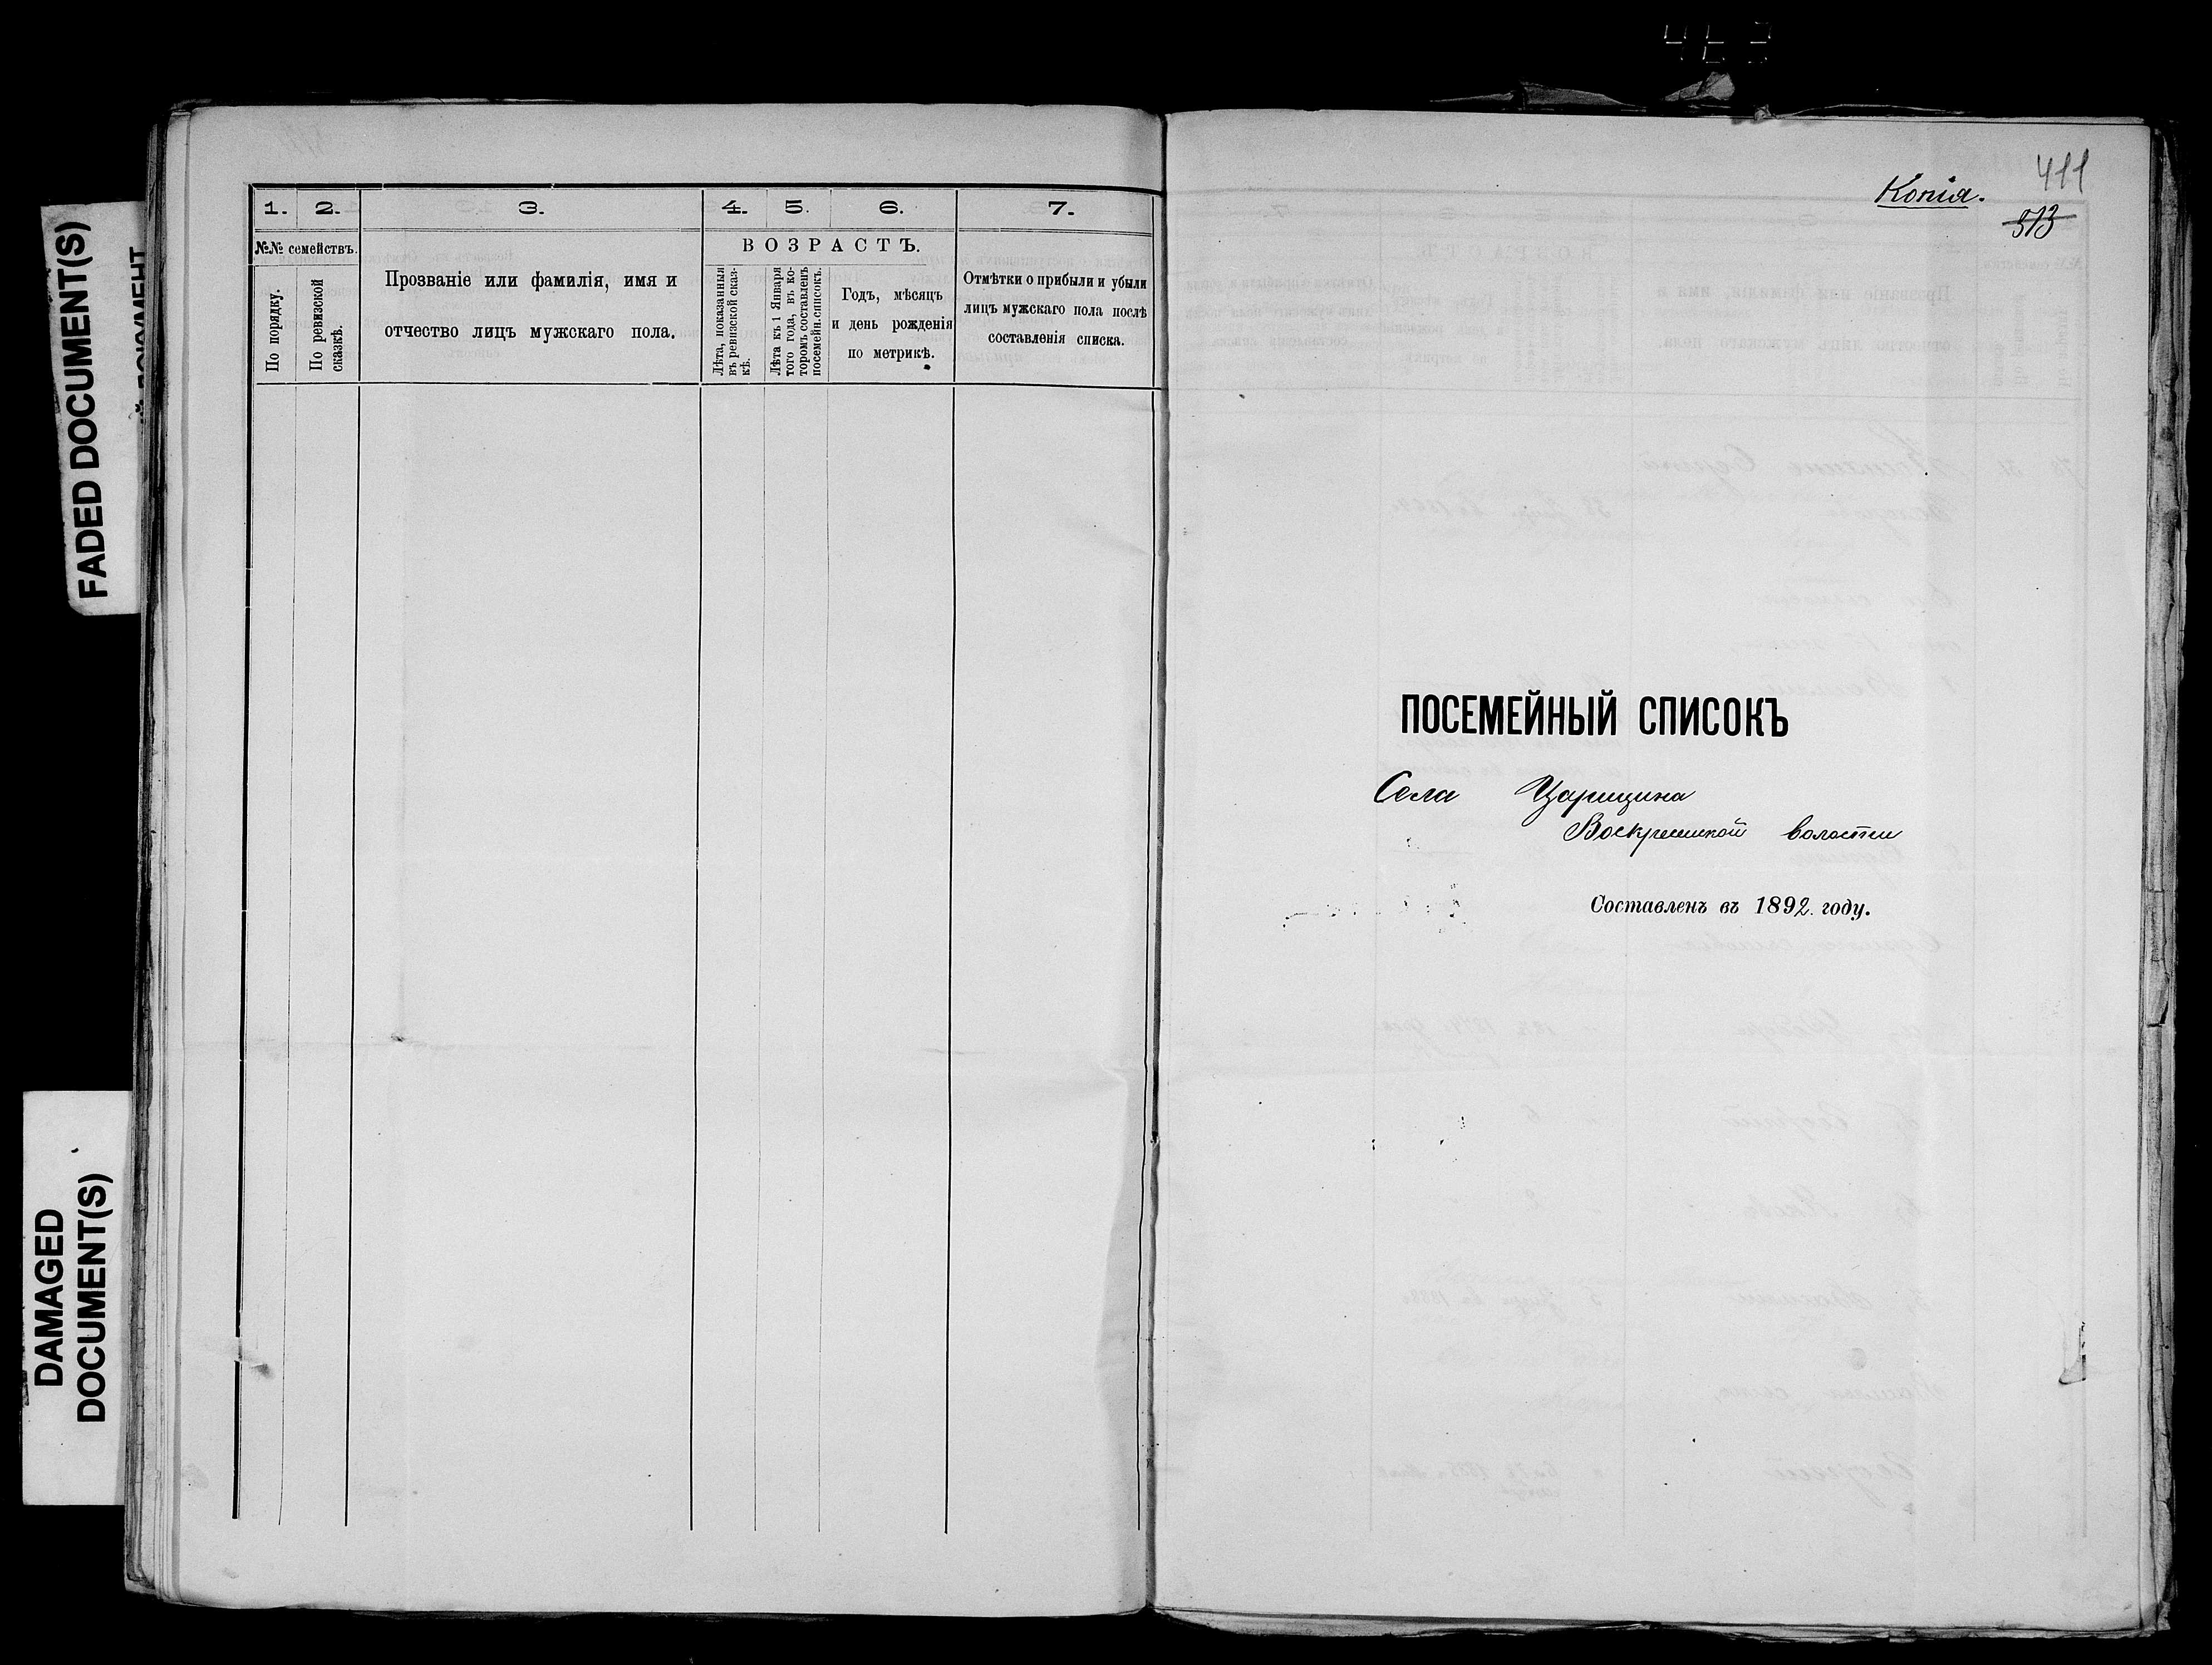 FADED DOCUMENT(S)
DAMAGED
DOCUMENT(S)
1. 2. 3. 4. 5. 6. 7.
№№ семействъ.
По порядку.
По ревизской
сказкѣ.
Прозваніе или фамилія, имя и
отчество лицъ мужскаго пола.
ВОЗРАСТЪ.
Лѣта, показанныя
въ ревизской сказ-
кѣ.
Лѣта къ 1 Января
того года, въ ко-
торомъ составленъ
посемейн. списокъ.
Годъ, мѣсяцъ
и день рожденія
по метрикѣ.
Отмѣтки о прибыли и убыли
лицъ мужскаго пола послѣ
составленія списка.
411
Копія.
513
ПОСЕМЕЙНЫЙ СПИСОКЪ
Села Царицина
Воскресенской волости
Составленъ въ 1892 году.